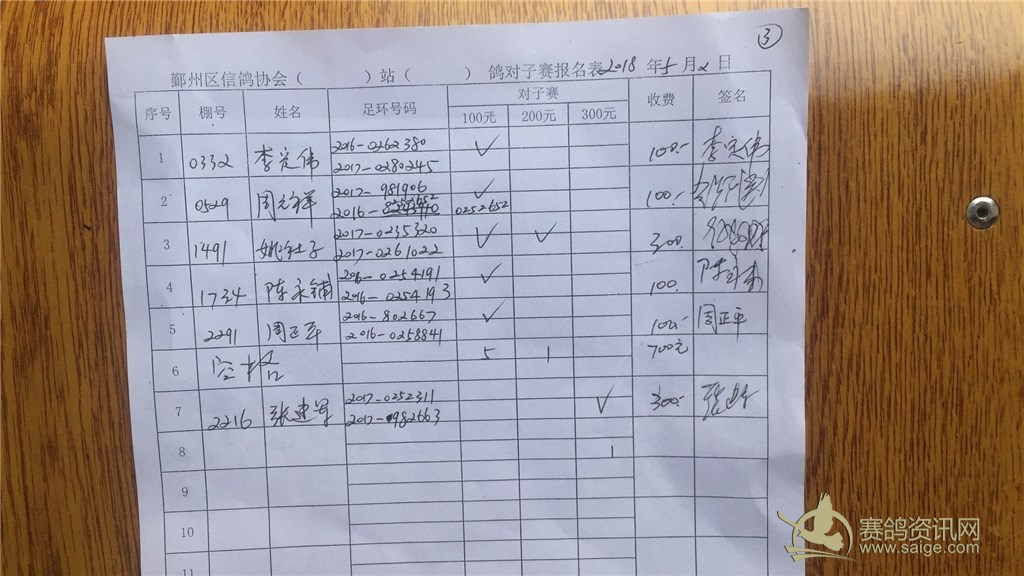 ③
鄞州区信鸽协会（　　　）站（　　　）鸽对子赛报名表2018 年5月2日
序号 棚号 姓名 足环号码 对子赛 收费 签名
100元 200元 300元
1 0332 李定伟 2016-0262380 ✓ 100.- 李定伟
2017-0280245
2 0529 周元祥 2017-981906 ✓ 100.-
2016- 0252652
3 1491 2017-0235320 ✓ ✓ 300.
2017-0261022
4 1734 陈永铺 2016-0254191 ✓ 100.
2016-0254193
5 2291 周正平 2016-802667 ✓ 100.- 周正平
2016-0258841
6 空格 5 1 700元
7 2216 张建军 2017-0252311 ✓ 300.
2017-0982663
8 1
9
10
11
赛鸽资讯网
www.saige.com